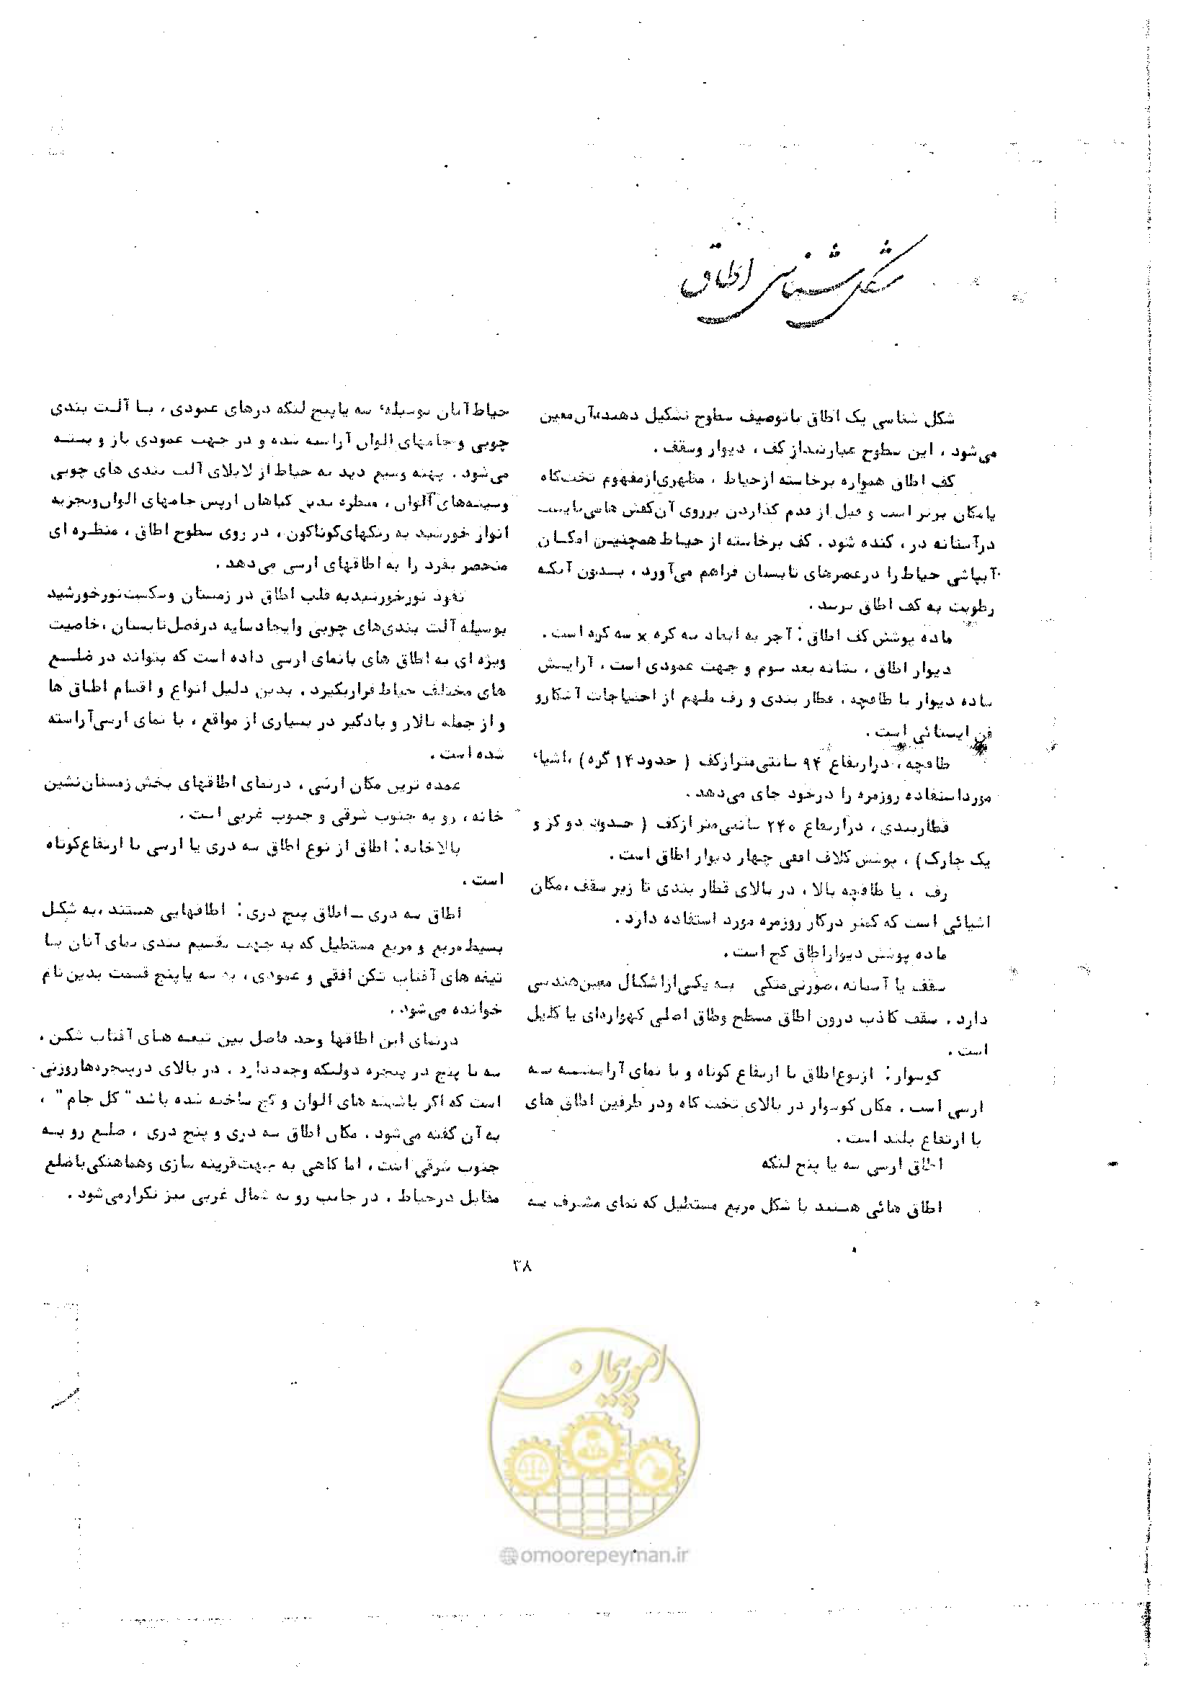 شکل شناسی اطاق
شکل شناسی یک اطاق باتوصیف سطوح تشکیل دهنده‌آن معین
می‌شود ، این سطوح عبارتنداز کف ، دیوار وسقف .
کف اطاق همواره برخاسته ازحیاط ، مظهری‌ازمفهوم تختگاه
یامکان برتر است و قبل از قدم گذاردن برروی آن‌کفش هامی‌بایست
درآستانه در ، کنده شود . کف برخاسته از حیاط همچنین امکان
آبپاشی حیاط را درعصرهای تابستان فراهم می‌آورد ، بدون آنکه
رطوبت به کف اطاق برسد .
ماده پوشش کف اطاق : آجر به ابعاد سه گره × سه گره است .
دیوار اطاق ، نشانه بعد سوم و جهت عمودی است ، آرایش
ساده دیوار با طاقچه ، قطار بندی و رف ملهم از احتیاجات آشکارو
فن ایستائی است .
طاقچه ، درارتفاع ۹۴ سانتی‌مترازکف ( حدود ۱۴ گره ) ،اشیاء
مورداستفاده روزمره را درخود جای می‌دهد .
قطاربندی ، درارتفاع ۲۴۰ سانتی‌متر ازکف ( حدود دو گز و
یک چارک) ، پوشش کلاف افقی چهار دیوار اطاق است .
رف ، یا طاقچه بالا ، در بالای قطار بندی تا زیر سقف ،مکان
اشیائی است که کمتر درکار روزمره مورد استفاده دارد .
ماده پوشش دیواراطاق گچ است .
سقف یا آسمانه ،صورتی‌متکی به یکی‌ازاشکال معین‌هندسی
دارد . سقف کاذب درون اطاق مسطح وطاق اصلی گهواره‌ای یا کلیل
است .
گوشوار : ازنوع‌اطاق با ارتفاع کوتاه و با نمای آراسته به
ارسی است . مکان گوشوار در بالای تخت گاه ودر طرفین اطاق های
با ارتفاع بلند است .
اطاق ارسی سه یا پنج لنگه
اطاق هائی هستند با شکل مربع مستطیل که نمای مشرف به
حیاط‌آنان بوسیله‌ء سه یاپنج لنگه درهای عمودی ، با آلت بندی
چوبی و جامهای الوان آراسته شده و در جهت عمودی باز و بسته
می‌شود . پهنه وسیع دید به حیاط از لابلای آلت بندی های چوبی
وشیشه‌های‌آلوان ، منظره گیاهان ازپس جامهای الوان‌وتجزیه
انوار خورشید به رنگهای‌گوناگون ، در روی سطوح اطاق ، منظره ای
منحصر بفرد را به اطاقهای ارسی می‌دهد .
نفوذ نورخورشیدبه قلب اطاق در زمستان وشکست‌نورخورشید
بوسیله آلت بندی‌های چوبی وایجادسایه درفصل‌تابستان ،خاصیت
ویژه ای به اطاق های بانمای ارسی داده است که بتواند در ضلع
های مختلف حیاط قراربگیرد . بدین دلیل انواع و اقسام اطاق ها
و از جمله تالار و بادگیر در بسیاری از مواقع ، با نمای ارسی‌آراسته
شده است .
عمده ترین مکان ارسی ، درنمای اطاقهای بخش زمستان‌نشین
خانه ، رو به جنوب شرقی و جنوب غربی است .
بالاخانه : اطاق از نوع اطاق سه دری یا ارسی با ارتفاع‌کوتاه
است .
اطاق سه دری – اطاق پنج دری : اطاقهایی هستند ،به شکل
بسیط‌مربع و مربع مستطیل که به جهت تقسیم بندی نمای آنان با
تیغه های آفتاب شکن افقی و عمودی ، به سه یاپنج قسمت بدین‌نام
خوانده می‌شود .
درنمای این اطاقها وحد فاصل بین تیغه های آفتاب شکن ،
سه تا پنج در پنجره دولنگه وجوددارد . در بالای درپنجره‌هاروزنی
است که اگر باشیشه های الوان و گچ ساخته شده باشد " گل جام " ،
به آن گفته می‌شود . مکان اطاق سه دری و پنج دری ، ضلع رو به
جنوب شرقی است ، اما گاهی به جهت‌قرینه سازی وهماهنگی‌باضلع
مقابل درحیاط ، در جانب رو به شمال غربی نیز تکرارمی‌شود .
۳۸
امور پیمان
@omoorepeyman.ir